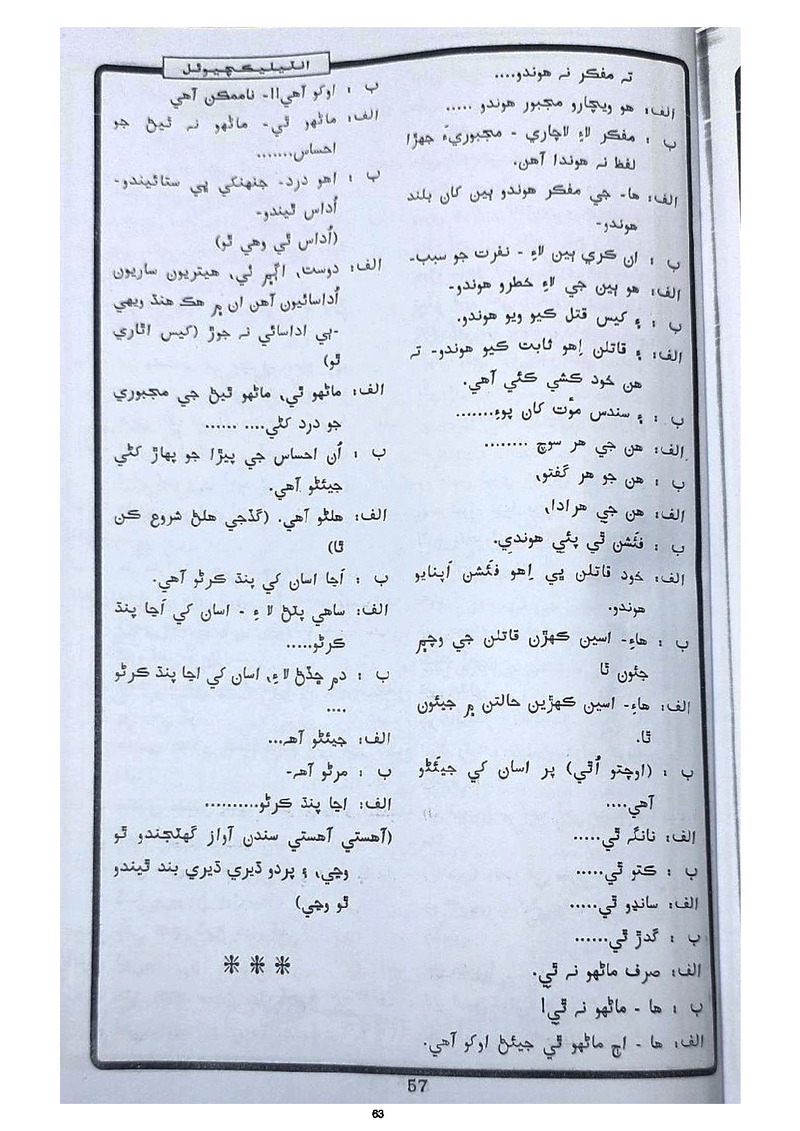 انٽيليڪچيوئل
ته مفڪر نه هوندو....
الف: هو ويچارو مجبور هوندو .....
ب : مفڪر لاءِ لاچاري - مجبوريءَ جهڙا
لفظ نه هوندا آهن.
الف: ها- جي مفڪر هوندو ٻين کان بلند
هوندو-
ب : ان ڪري ٻين لاءِ - نفرت جو سبب-
الف: هو ٻين جي لاءِ خطرو هوندو-
ب : ۽ کيس قتل ڪيو ويو هوندو.
الف: ۽ قاتلن اِهو ثابت ڪيو هوندو- ته
هن خود ڪشي ڪئي آهي.
ب : ۽ سندس موُت کان پوءِ.......
الف: هن جي هر سوچ ........
ب : هن جو هر گفتو،
الف: هن جي هر ادا،
ب : فئشن ٿي پئي هوندي.
الف: خود قاتلن ڀي اِهو فئشن اَپنايو
هوندو.
ب : هاءِ- اسين ڪهڙن قاتلن جي وچ۾
جئون ٿا
الف: هاءِ- اسين ڪهڙين حالتن ۾ جيئون
ٿا.
ب : (اوچتو اُٿي) پر اسان کي جيئڻو
آهي....
الف: نانگ ٿي.....
ب : ڪتو ٿي.....
الف: سانڍو ٿي.....
ب : گدڙ ٿي......
الف: صرف ماڻهو نه ٿي.
ب : ها - ماڻهو نه ٿي!
الف: ها - اڄ ماڻهو ٿي جيئڻ اوکو آهي.
ب : اوکو آهي!!- ناممڪن آهي
الف: ماڻهو ٿي- ماڻهو نه ٿيڻ جو
احساس.......
ب : اهو درد- جنهنکي ڀي ستائيندو-
اُداس ٿيندو-
(اُداس ٿي وهي ٿو)
الف: دوست، اٿي، هيتريون ساريون
اُداسائيون آهن ان ۾ هڪ هنڌ ويهي
-ٻي اداسائي نه جوڙ (کيس اٿاري
ٿو)
الف: ماڻهو ٿي، ماڻهو ٿيڻ جي مجبوري
جو درد کڻي.... ......
ب : اُن احساس جي پيڙا جو پهاڙ کڻي
جيئڻو آهي.
الف: هلڻو آهي. (گڏجي هلڻ شروع ڪن
ٿا)
ب : اَڃا اسان کي پنڌ ڪرڻو آهي.
الف: ساهي پٽڻ لا ءِ - اسان کي اَڃا پنڌ
ڪرڻو.....
ب : دم ڇڏڻ لاءِ، اسان کي اڃا پنڌ ڪرڻو
....
الف: جيئڻو آهه...
ب : مرڻو آهه-
الف: اڃا پنڌ ڪرڻو..........
(آهستي آهستي سندن آواز گهٽجندو ٿو
وڃي، ۽ پردو ڌيري ڌيري بند ٿيندو
ٿو وڃي)
❋ ❋ ❋
57
63